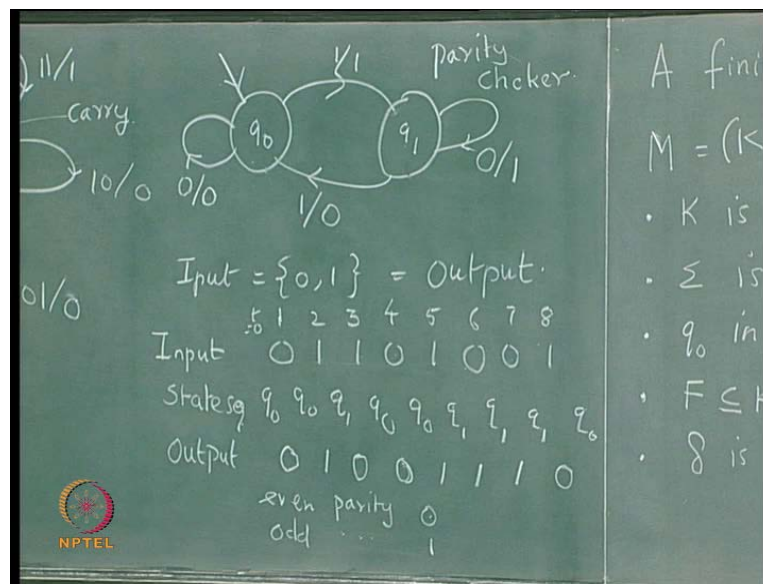 11/1
carry.
10/0
01/0
q0
q1
1/1
0/0
1/0
0/1
parity
chcker.
Iput = {0,1} = Output.
t=0 1 2 3 4 5 6 7 8
Input 0 1 1 0 1 0 0 1
Stateseq q0 q0 q1 q0 q0 q1 q1 q1 q0
Output 0 1 0 0 1 1 1 0
even parity 0
odd ... 1
A fini
M = (K
· K is
· Σ is
· q0 in
· F ⊆ K
· δ is
NPTEL